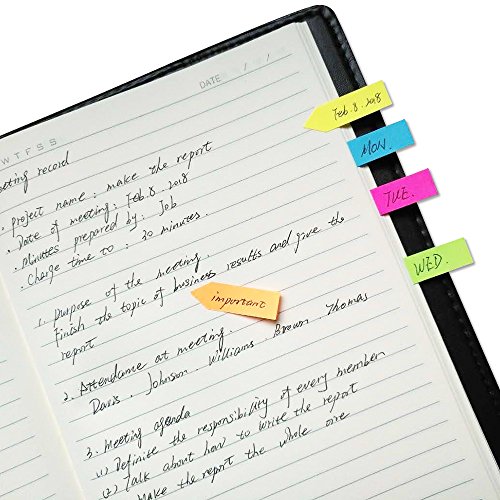 DATE
W T F S S
eeting record
. project name : make the report
. Date of meeting : Feb. 8. 2018
. Minutes prepared by : Job
. Charge time to : 30 minutes.
1. Purpose of the meeting.
Finish the topic of business results and give the
report
2. Attendance at meeting.
Davis . Johnson . Williams . Brown . Thomas
3. meeting agenda
(1) Definite the responsibility of every member
(2) Talk about how to write the report
Make the report the whole one
important
Feb. 8. 2018
MON.
TUE.
WED.